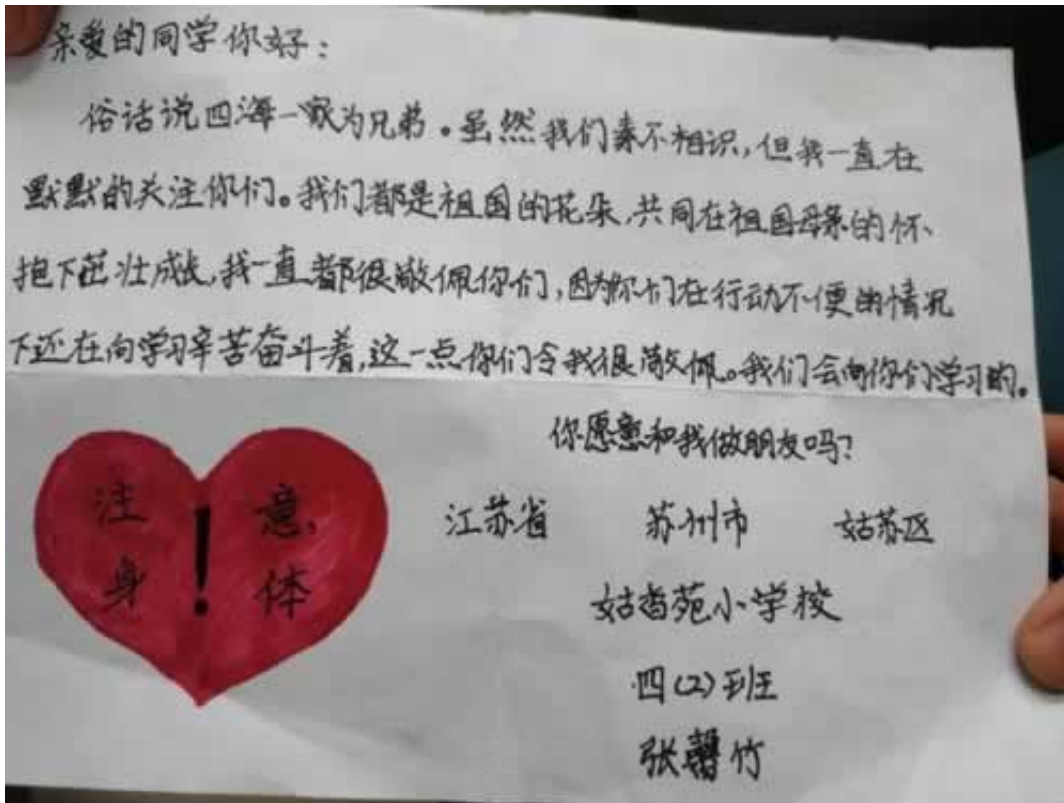 亲爱的同学你好：
俗话说四海一家为兄弟。虽然我们素不相识，但我一直在
默默的关注你们。我们都是祖国的花朵，共同在祖国母亲的怀
抱下茁壮成长，我一直都很敬佩你们，因为你们在行动不便的情况
下还在向学习辛苦奋斗着，这一点你们令我很敬佩。我们会向你们学习的。
你愿意和我做朋友吗？
注意
！
身体
江苏省 苏州市 姑苏区
姑香苑小学校
四(2)班
张馨竹